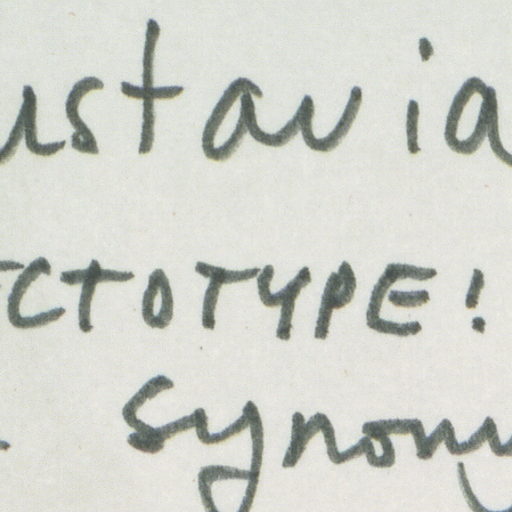 ustavia
CTOTYPE!
synony